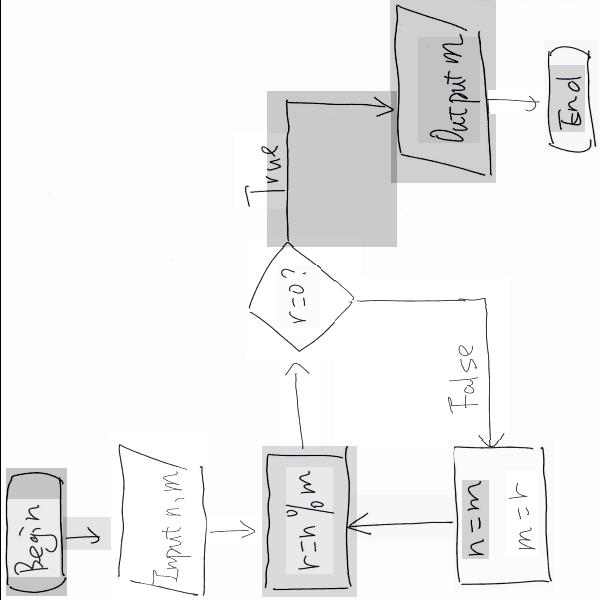 Begin
Input n,m
r=n%m
r=0?
True
Output m
End
False
n=m
m=r